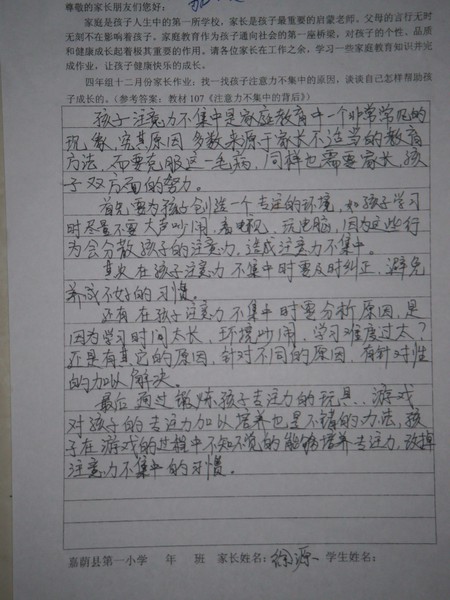 尊敬的家长朋友们您好：
家庭是孩子人生中的第一所学校，家长是孩子最重要的启蒙老师，父母的言行无时
无刻不在影响着孩子。家庭教育作为孩子通向社会的第一座桥梁，对孩子的个性、品质
和健康成长起着极其重要的作用。请各位家长在工作之余，学习一些家庭教育知识并完
成作业，让孩子健康快乐的成长。
四年组十二月份家长作业：找一找孩子注意力不集中的原因，谈谈自己怎样帮助孩
子成长的。（参考答案：教材107《注意力不集中的背后》）
孩子注意力不集中是家庭教育中一个非常常见的
现象，究其原因，多数来源于家长不适当的教育
方法，而要克服这一毛病，同样也需要家长、孩
子双方面的努力。
首先要为孩子创造一个专注的环境，如孩子学习
时尽量不要大声吵闹、看电视、玩电脑，因为这些行
为会分散孩子的注意力，造成注意力不集中。
其次在孩子注意力不集中时要及时纠正，避免
养成不好的习惯。
还有在孩子注意力不集中时要分析原因，是
因为学习时间太长、环境吵闹、学习难度过大？
还是有其它的原因，针对不同的原因，有针对性
的加以解决。
最后通过锻炼孩子专注力的玩具、游戏
对孩子的专注力加以培养也是不错的办法，孩
子在游戏的过程中不知不觉的能够培养专注力，改掉
注意力不集中的习惯。
嘉荫县第一小学 年 班 家长姓名： 学生姓名：